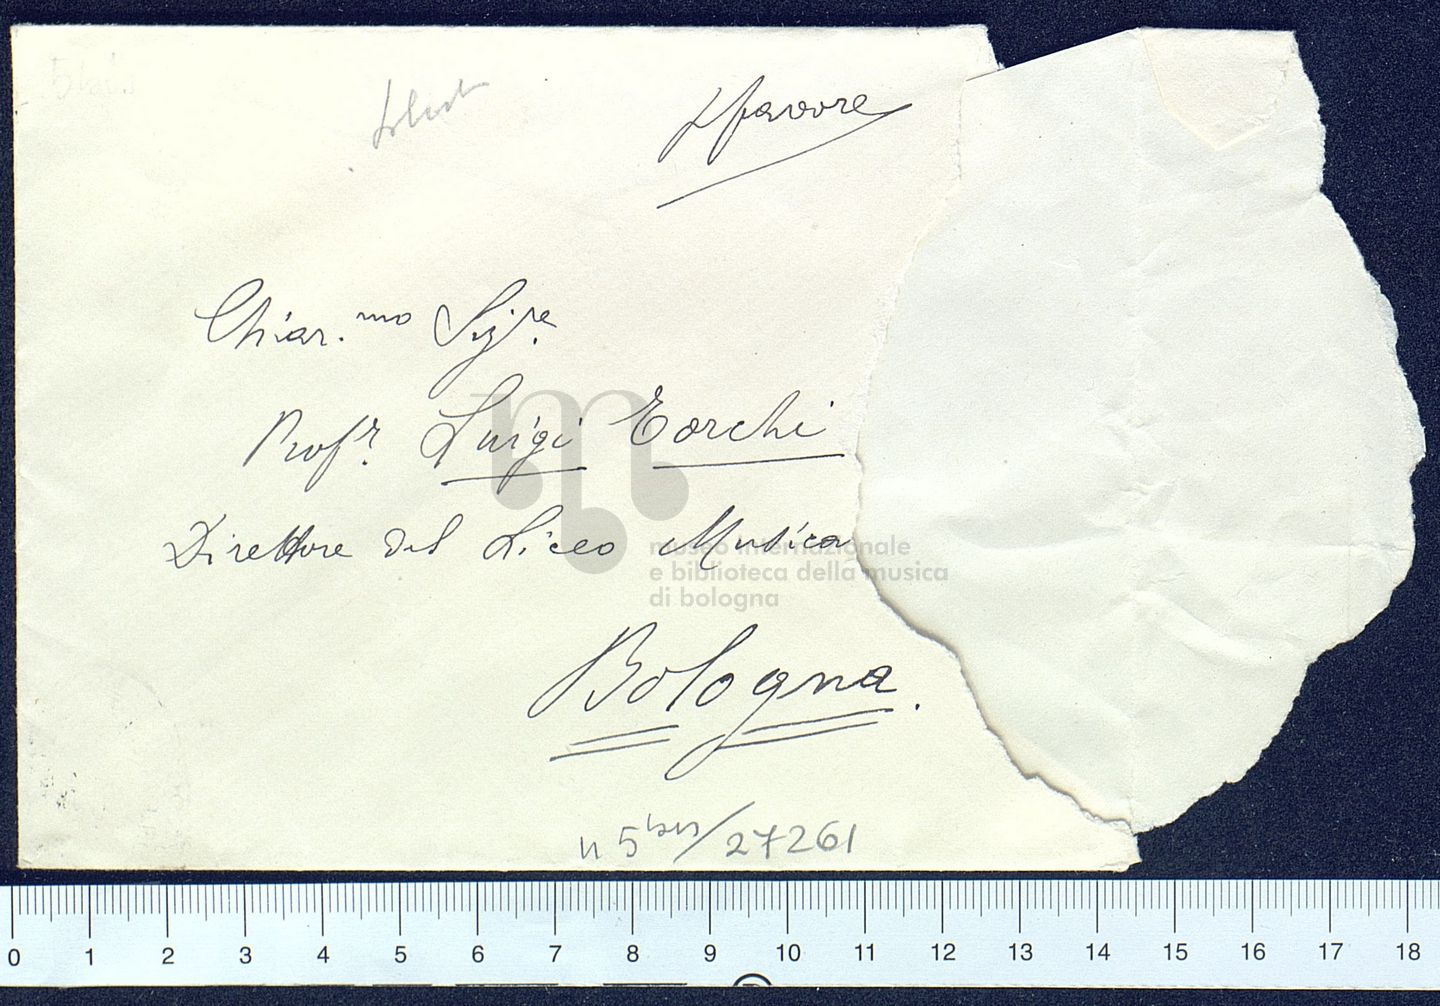 5 bis
favore
Chiar.mo Sig.re
Prof.r Luigi Torchi
Direttore del Liceo Musica
Bologna.
n 5 bis/27261
museo internazionale
e biblioteca della musica
di bologna
0 1 2 3 4 5 6 7 8 9 10 11 12 13 14 15 16 17 18